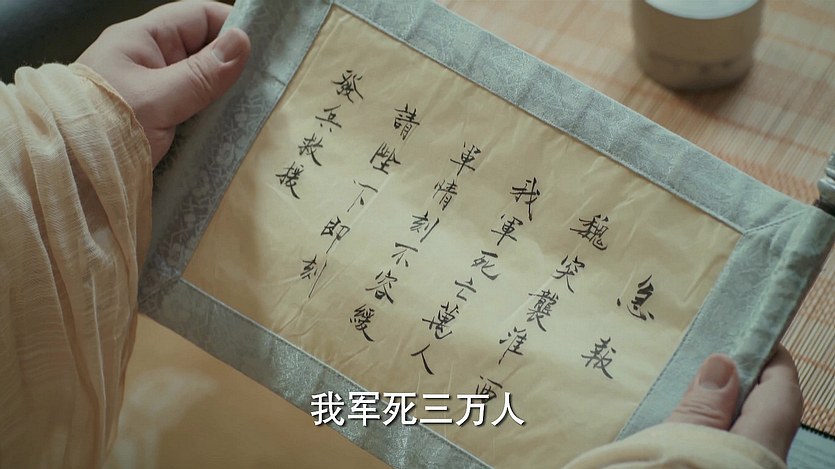 急報
魏突襲淮西
我軍死亡萬人
軍情刻不容緩
請陛下即刻
發兵救援
我军死三万人